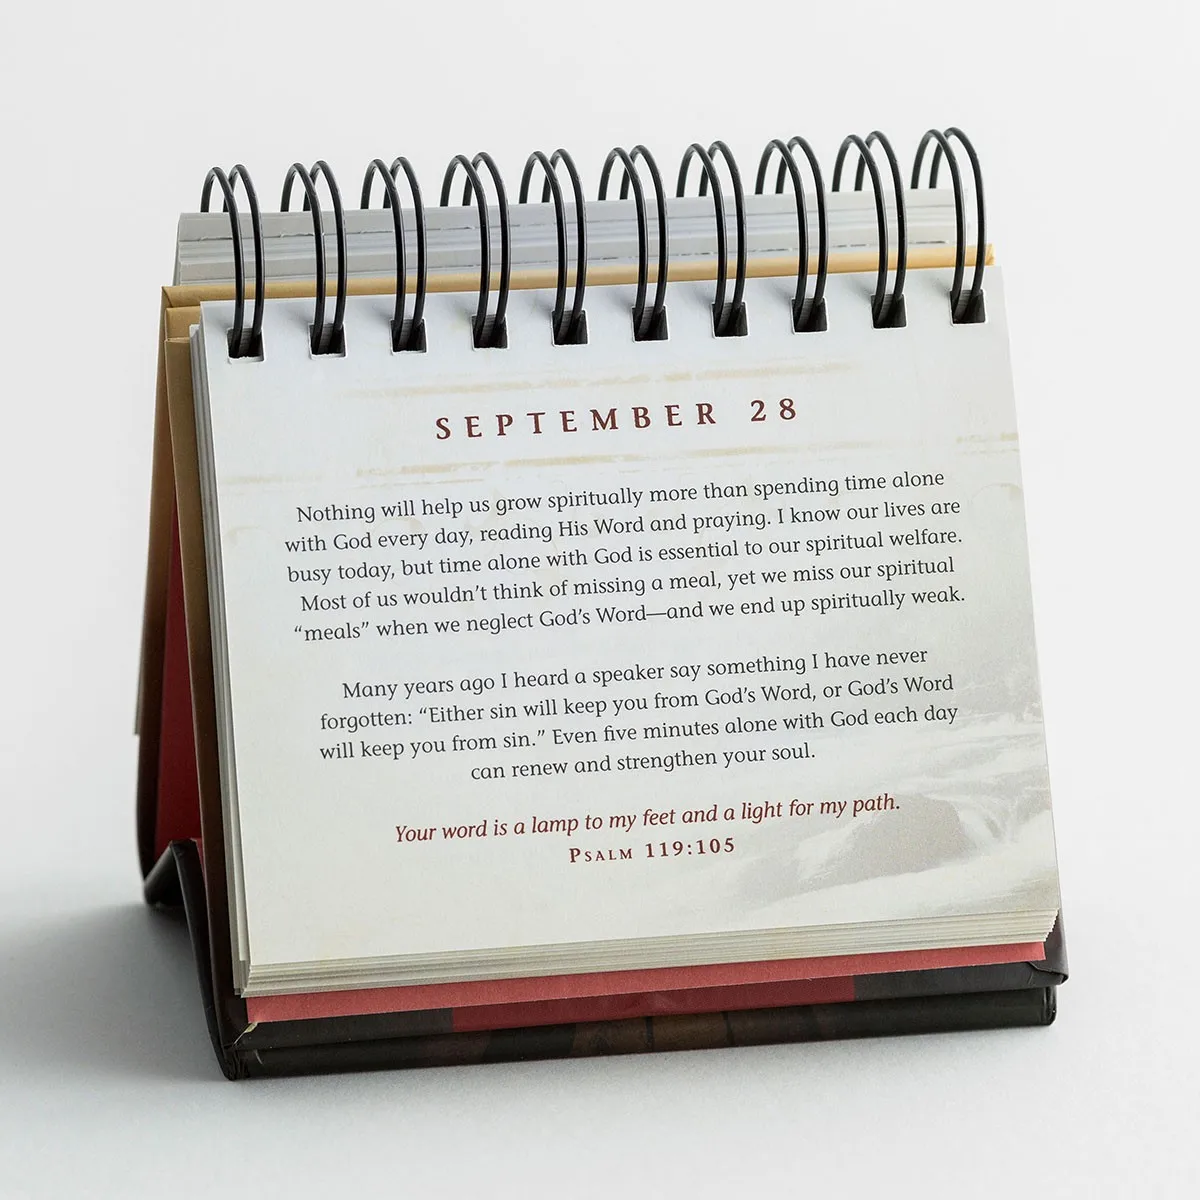 SEPTEMBER 28
Nothing will help us grow spiritually more than spending time alone
with God every day, reading His Word and praying. I know our lives are
busy today, but time alone with God is essential to our spiritual welfare.
Most of us wouldn’t think of missing a meal, yet we miss our spiritual
“meals” when we neglect God’s Word—and we end up spiritually weak.
Many years ago I heard a speaker say something I have never
forgotten: “Either sin will keep you from God’s Word, or God’s Word
will keep you from sin.” Even five minutes alone with God each day
can renew and strengthen your soul.
Your word is a lamp to my feet and a light for my path.
PSALM 119:105